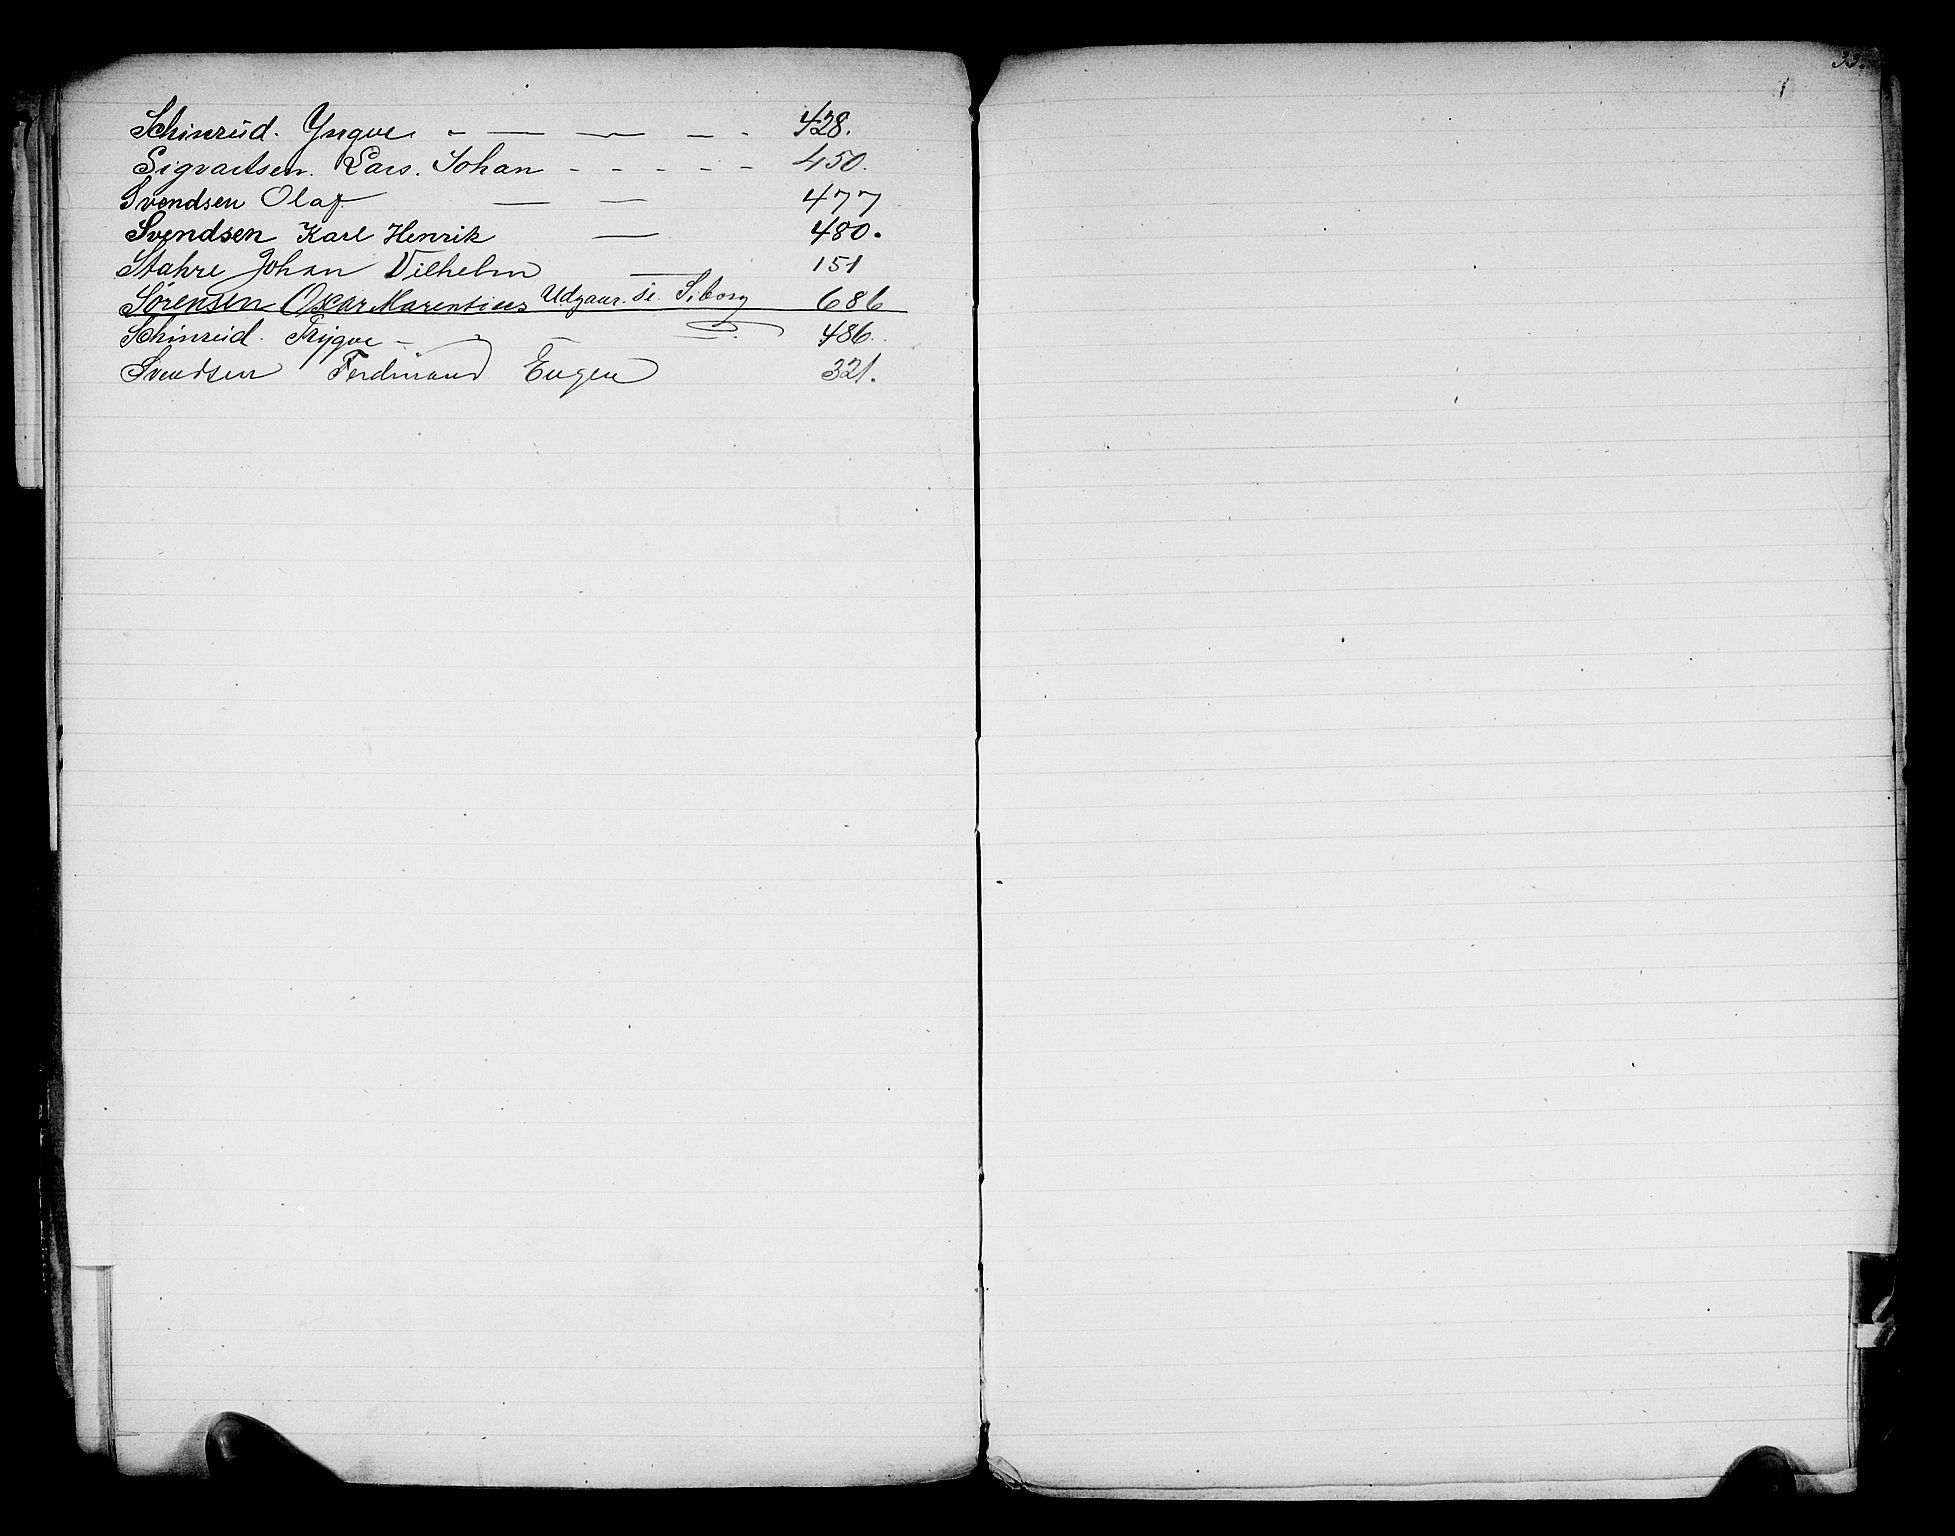 Schinrud. Yngve. - — — — - 428.
Sigvartsen. Lars. Johan - - - - - 450.
Svendsen Olaf — — 477
Svendsen Karl Henrik — 480.
Stahre Johan Vilhelm — 151
Sørensen Oscar Marentius Udgaar. se. Siborg 686
Schinrud. Trygve - 486.
Svendsen Ferdinand Eugen 321.
33.